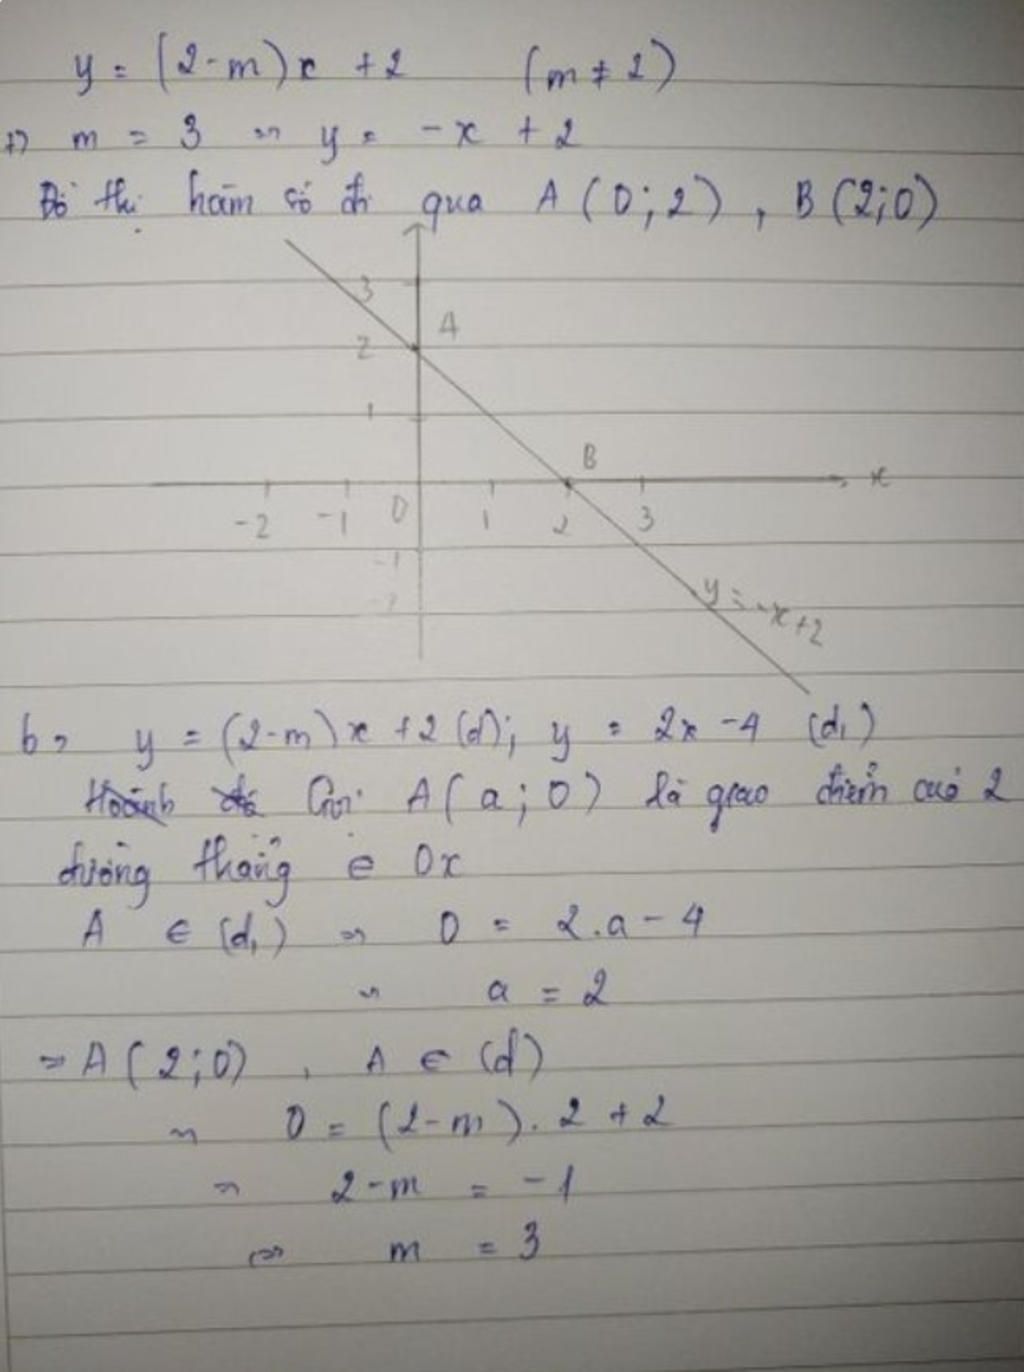 y = (2-m)x + 2 (m ≠ 2)
+) m = 3 => y = -x + 2
Đồ thị hàm số đi qua A(0;2), B(2;0)
3
A
2
1
B
x
-2 -1 0 1 2 3
-1
-2
y = -x+2
b, y = (2-m)x + 2 (d); y = 2x - 4 (d₁)
Hoành độ Gọi A(a;0) là giao điểm của 2
đường thẳng ∈ Ox
A ∈ (d₁) => 0 = 2.a - 4
=> a = 2
=> A(2;0), A ∈ (d)
=> 0 = (2-m).2 + 2
=> 2-m = -1
<=> m = 3